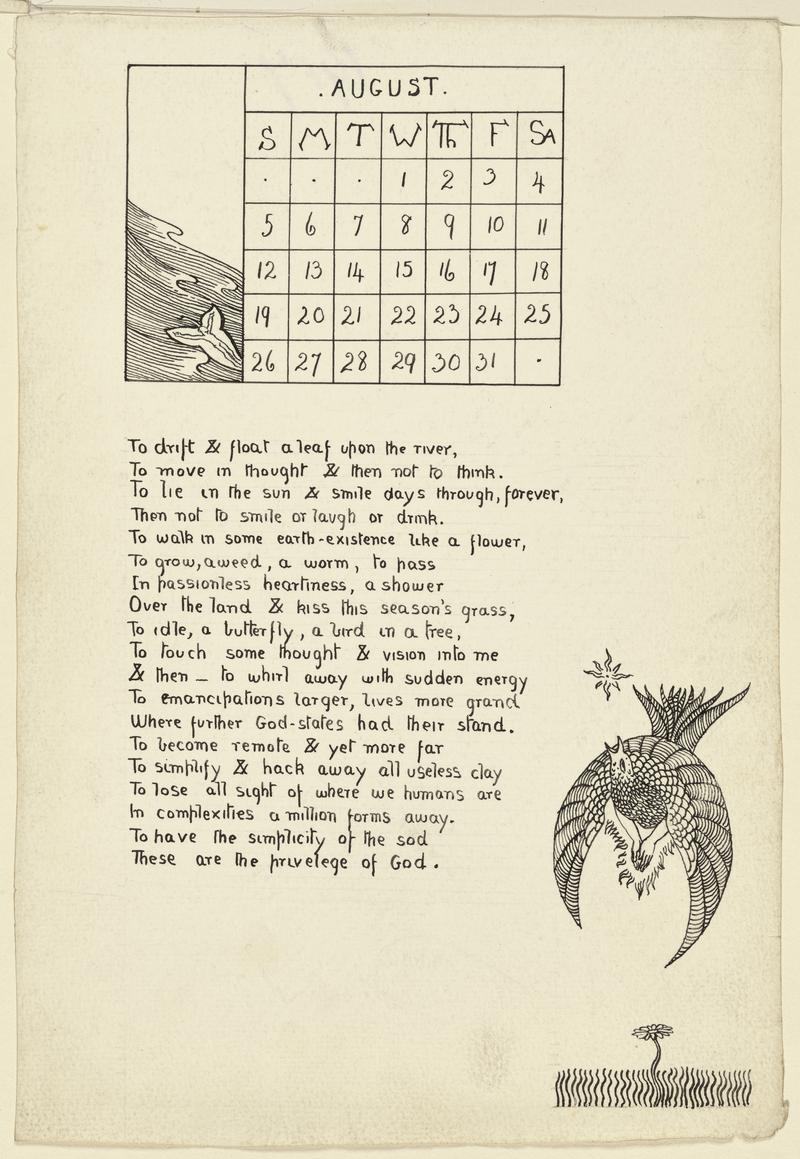 . AUGUST .
S M T W Th F SA
. . . 1 2 3 4
5 6 7 8 9 10 11
12 13 14 15 16 17 18
19 20 21 22 23 24 25
26 27 28 29 30 31 .
To drift & float a leaf upon the river,
To move in thought & then not to think.
To lie in the sun & smile days through, forever,
Then not to smile or laugh or drink.
To walk in some earth-existence like a flower,
To grow, a weed, a worm, to pass
In passionless heartiness, a shower
Over the land & kiss this season's grass,
To idle, a butterfly, a bird in a tree,
To touch some thought & vision into me
& then — to whirl away with sudden energy
To emancipations larger, lives more grand
Where further God-states had their stand.
To become remote & yet more far
To simplify & hack away all useless clay
To lose all sight of where we humans are
In complexities a million forms away.
To have the simplicity of the sod
These are the privelege of God.